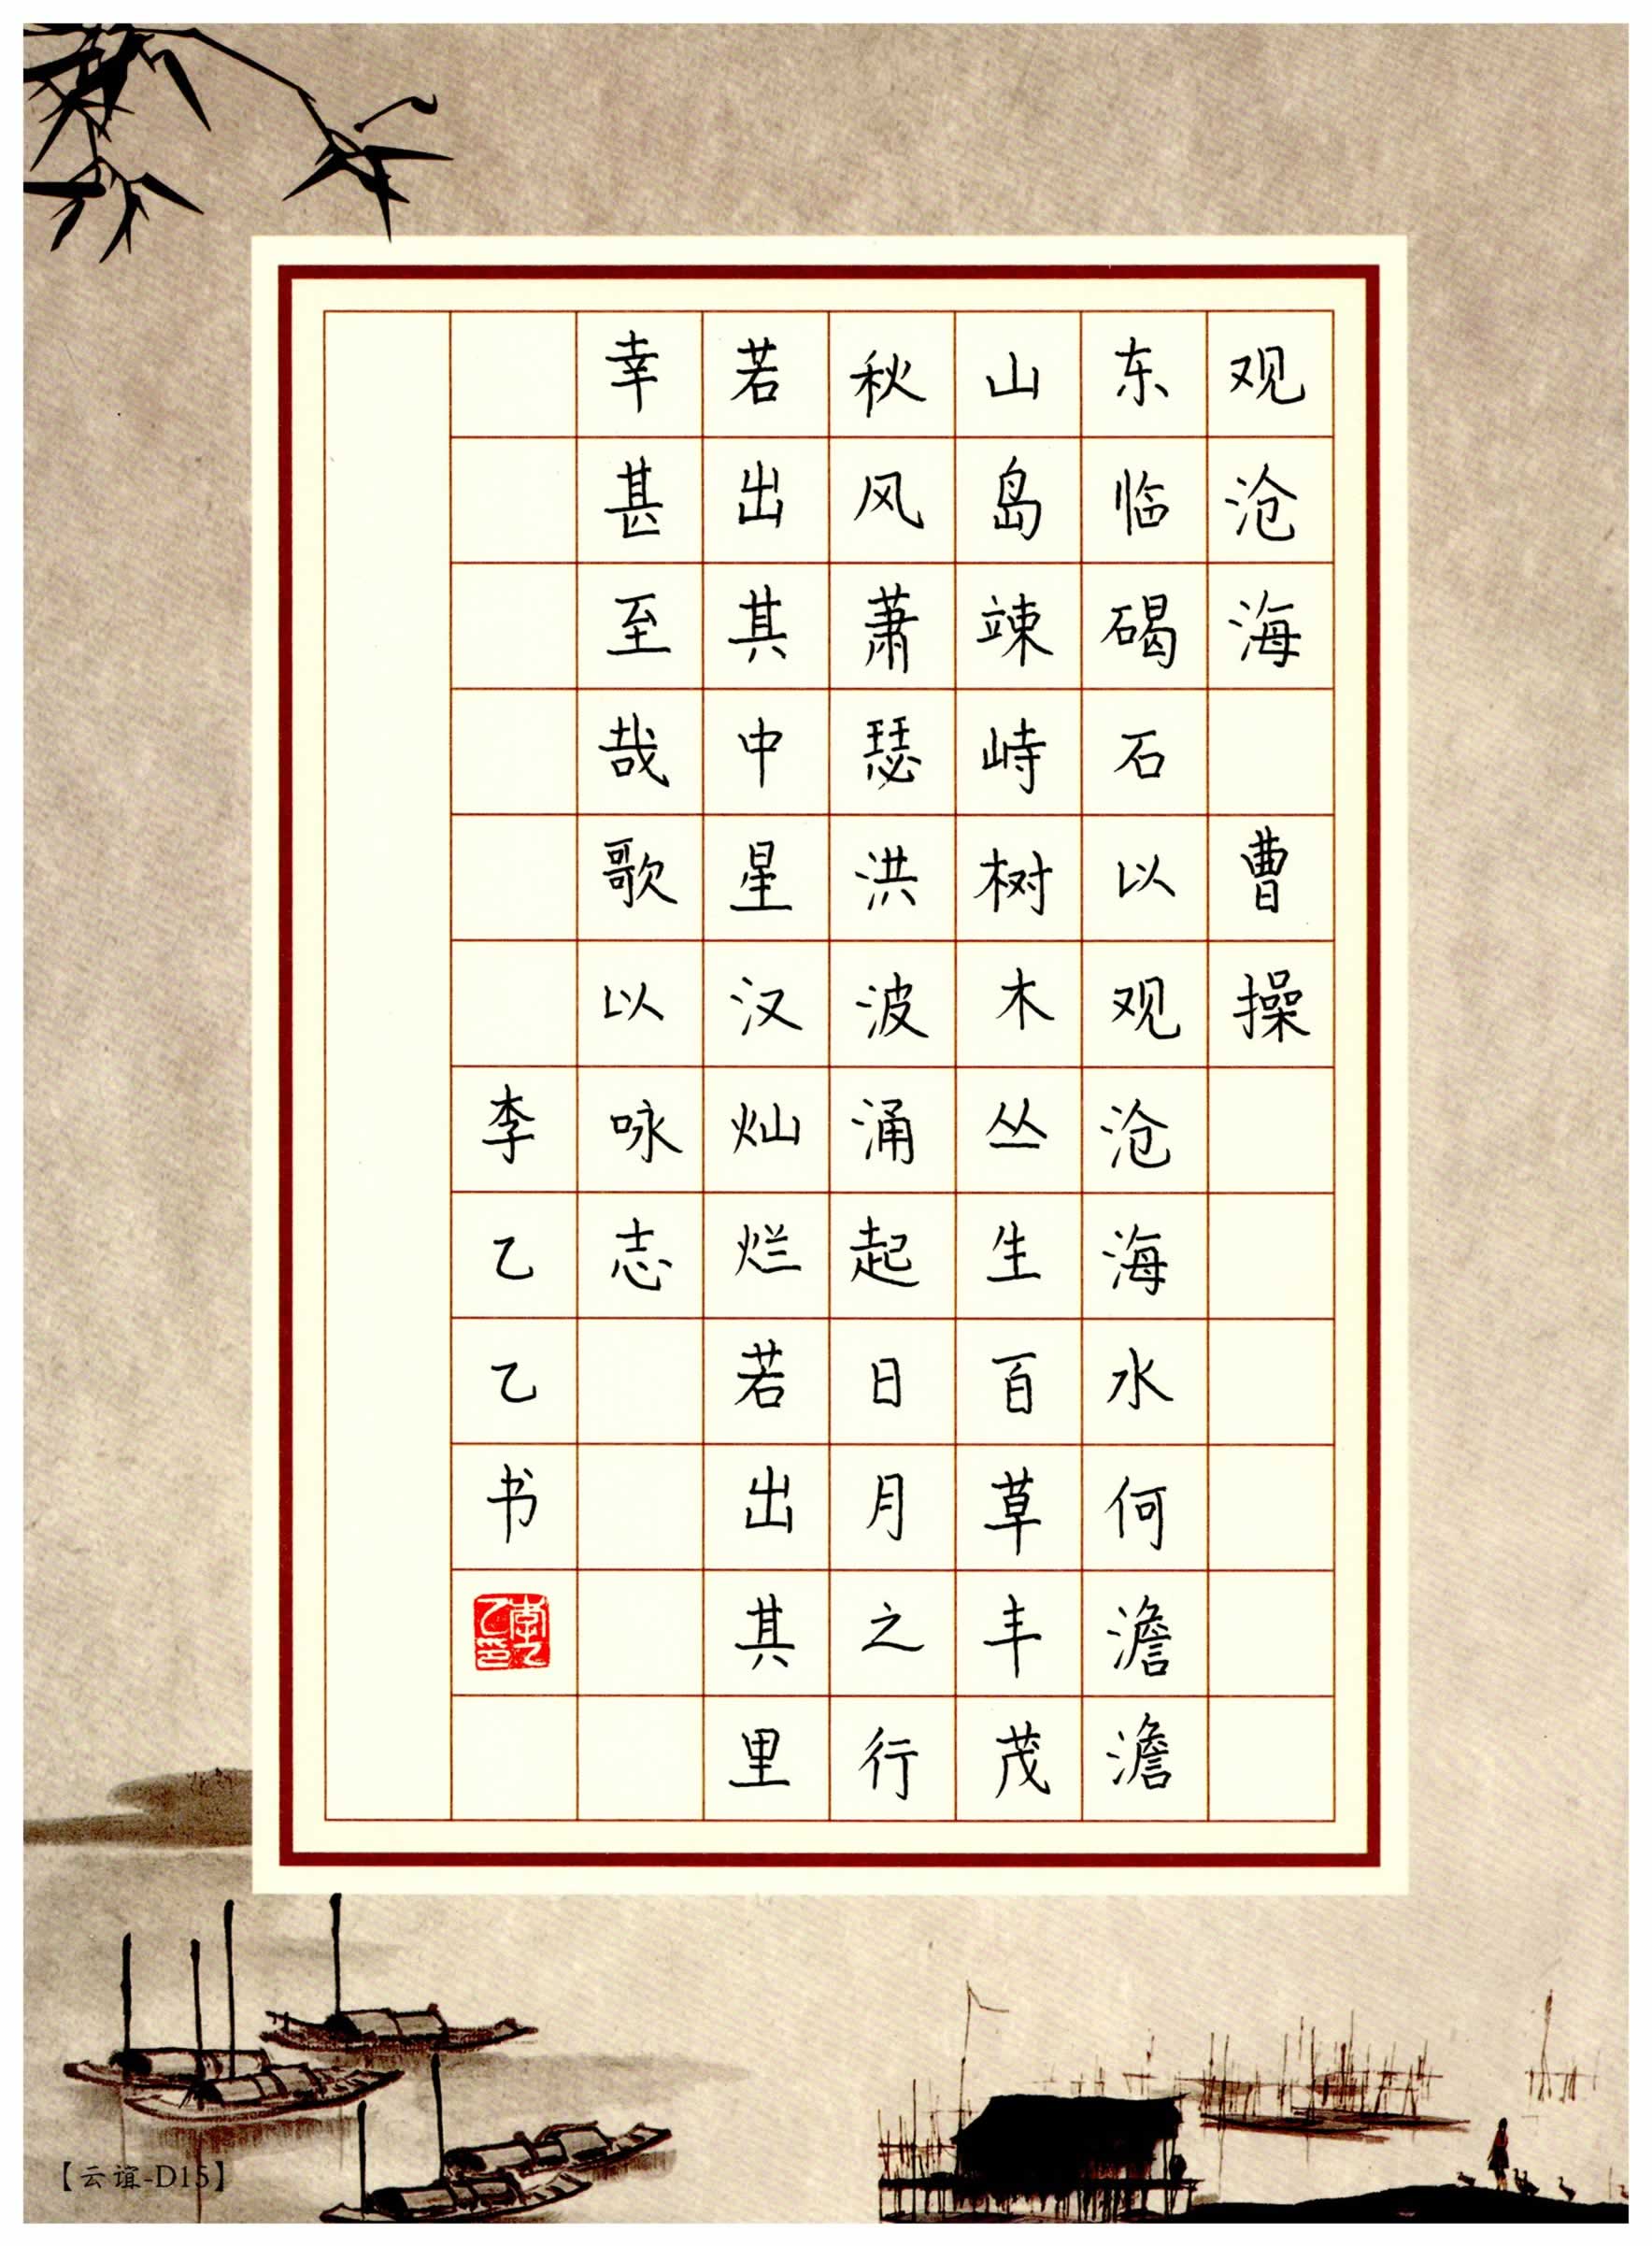 观沧海 曹操
东临碣石以观沧海水何澹澹
山岛竦峙树木丛生百草丰茂
秋风萧瑟洪波涌起日月之行
若出其中星汉灿烂若出其里
幸甚至哉歌以咏志
李乙乙书
李乙乙印
【云谊-D15】